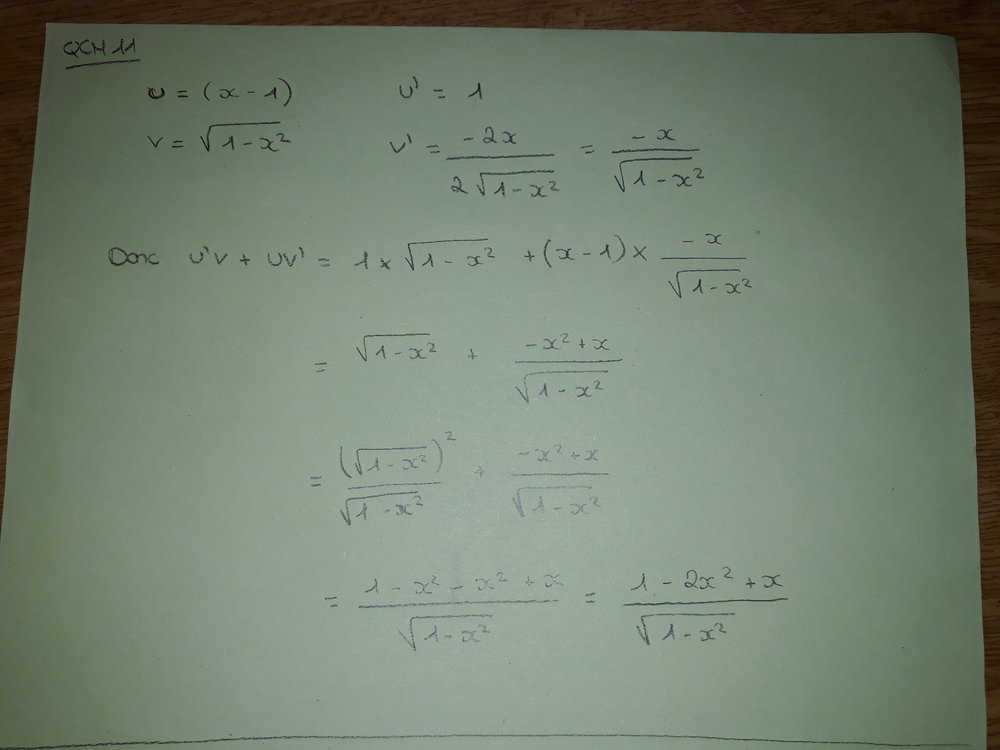 QCM 11
u = (x - 1) u' = 1
v = √(1-x²) v' = -2x / (2√(1-x²)) = -x / √(1-x²)
Donc u'v + uv' = 1 × √(1-x²) + (x-1) × -x / √(1-x²)
= √(1-x²) + (-x²+x) / √(1-x²)
= (√(1-x²))² / √(1-x²) + (-x²+x) / √(1-x²)
= (1 - x² - x² + x) / √(1-x²) = (1 - 2x² + x) / √(1-x²)